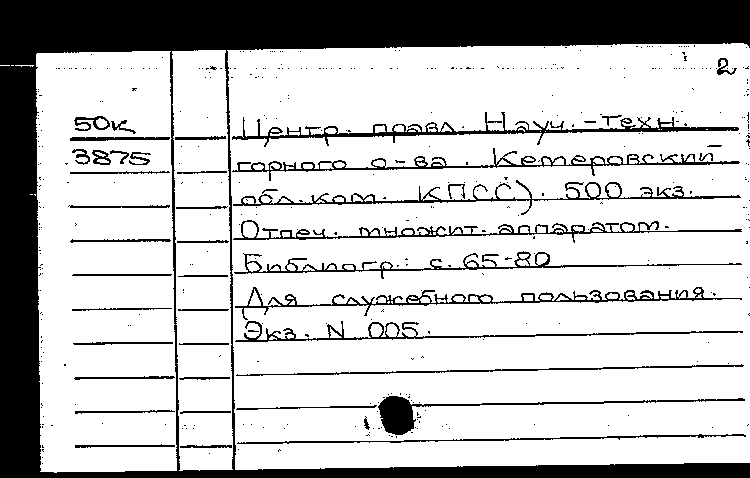 2
50к Центр. правл. Науч.-техн.
3875 горного о-ва. Кемеровский
обл.ком. КПСС). 500 экз.
Отпеч. множит. аппаратом.
Библиогр.: с. 65-80
Для служебного пользования.
Экз. N 005.